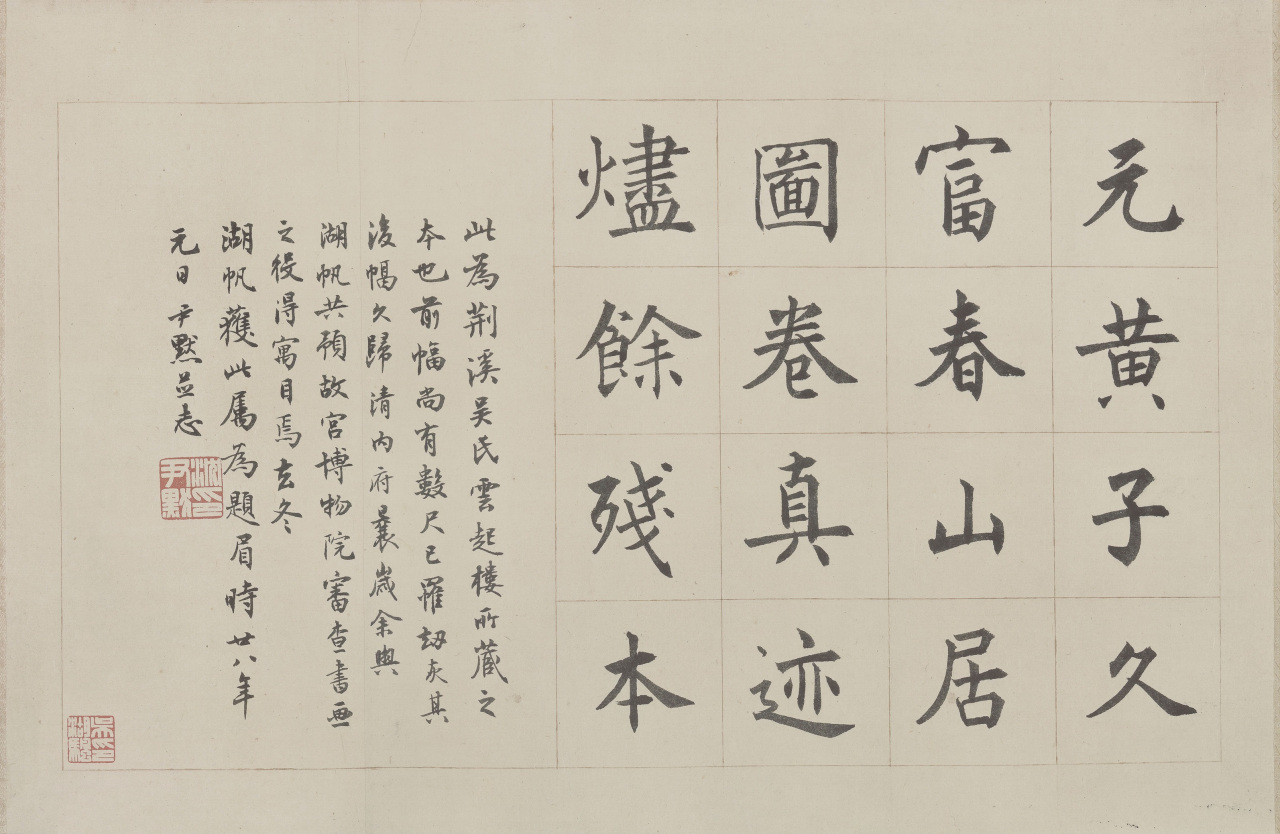 元黃子久
富春山居
圖卷真迹
燼餘殘本
此為荆溪吴氏雲起樓所藏之
本也前幅尚有數尺已罹劫灰其
後幅久歸清内府曩歲余與
湖帆共預故宫博物院審查書畫
之役得寓目焉去冬
湖帆獲此屬為題眉時廿八年
元日尹默並志
沈尹默印
吴湖帆印